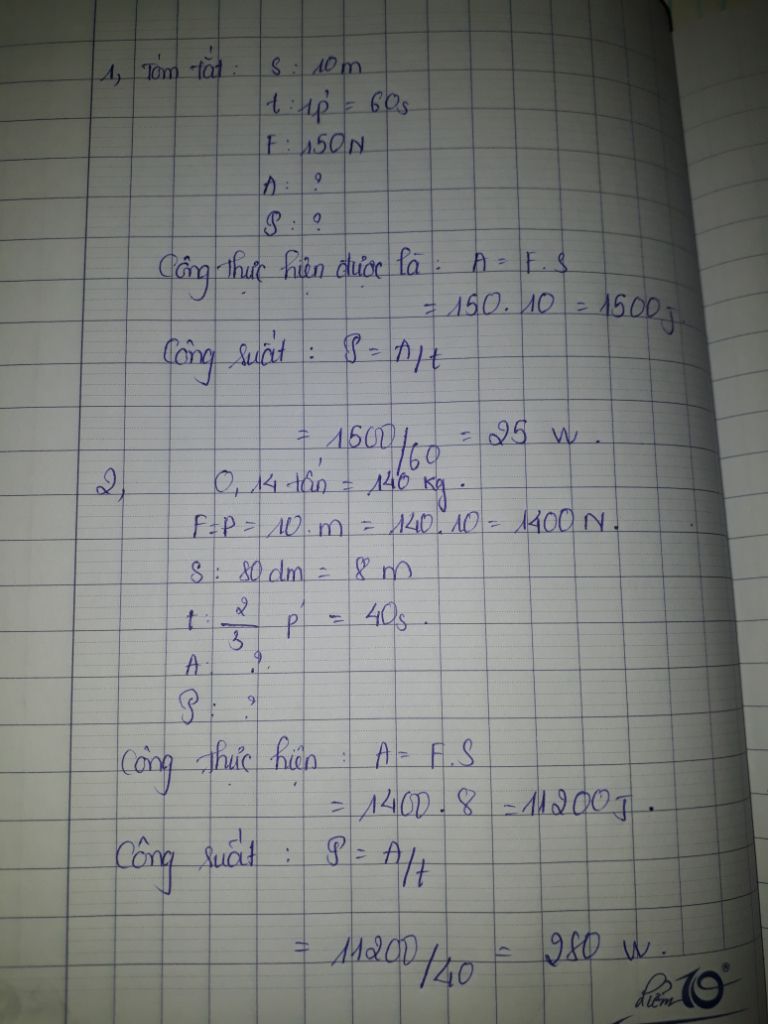 1, Tóm tắt: S: 10m
t: 1p' = 60s
F: 150N
A: ?
P: ?
Công thực hiện được là: A = F.S
= 150.10 = 1500J
Công suất: P = A/t
= 1500/60 = 25 W.
2, 0,14 tấn = 140 kg.
F=P= 10.m = 140.10 = 1400N.
S: 80dm = 8m
t: 2/3 p' = 40s.
A: ?
P: ?
Công thực hiện: A = F.S
= 1400.8 = 11200J.
Công suất: P = A/t
= 11200/40 = 280 W.
Điểm 10